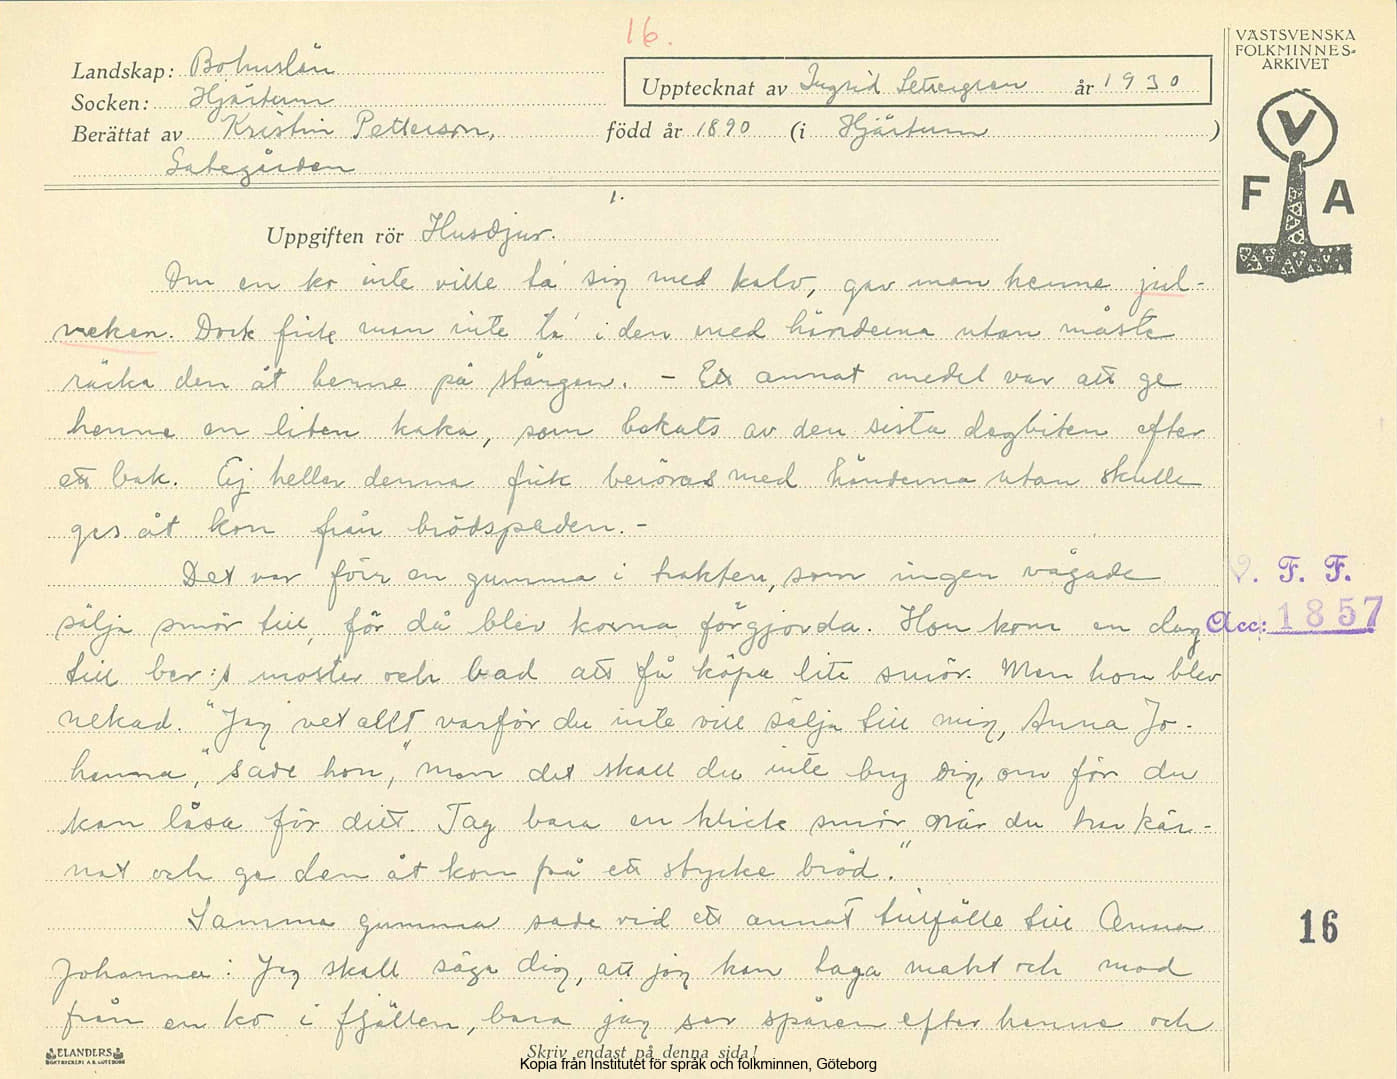 16.
VÄSTSVENSKA
FOLKMINNES-
ARKIVET
V
F A
Landskap: Bohuslän
Upptecknat av Ingrid år 1930
Socken: Hjärtum
Berättat av Kristin Petterson, född år 1890 (i Hjärtum)
1.
Uppgiften rör Husdjur.
Om en ko inte ville ta' sig med kalv, gav man henne jul-
veken. Dock fick man inte ta' i den med händerna utan måste
räcka den åt henne på stången. - Ett annat medel var att ge
henne en liten kaka, som bakats av den sista degbiten efter
ett bak. Ej heller denna fick beröras med händerna utan skulle
ges åt kon från brödspaden. -
Det var förr en gumma i trakten, som ingen vågade
sälja smör till, för då blev korna förgjorda. Hon kom en dag
till ber:s moster och bad att få köpa lite smör. Men hon blev
nekad. "Jag vet allt varför du inte vill sälja till mig, Anna Jo-
hanna," sade hon, "men det skall du inte bry dig om för du
kan läsa för ditt. Tag bara en klick smör när du har kär-
nat och ge den åt kon på ett stycke bröd."
Samma gumma sade vid ett annat tillfälle till Anna
Johanna: Jag skall säga dig, att jag kan taga makt och mod
från en ko i fjällen, bara jag ser spåren efter henne och
V. F. F.
Acc: 1857
16
ELANDERS
Skriv endast på denna sida!
Kopia från Institutet för språk och folkminnen, Göteborg